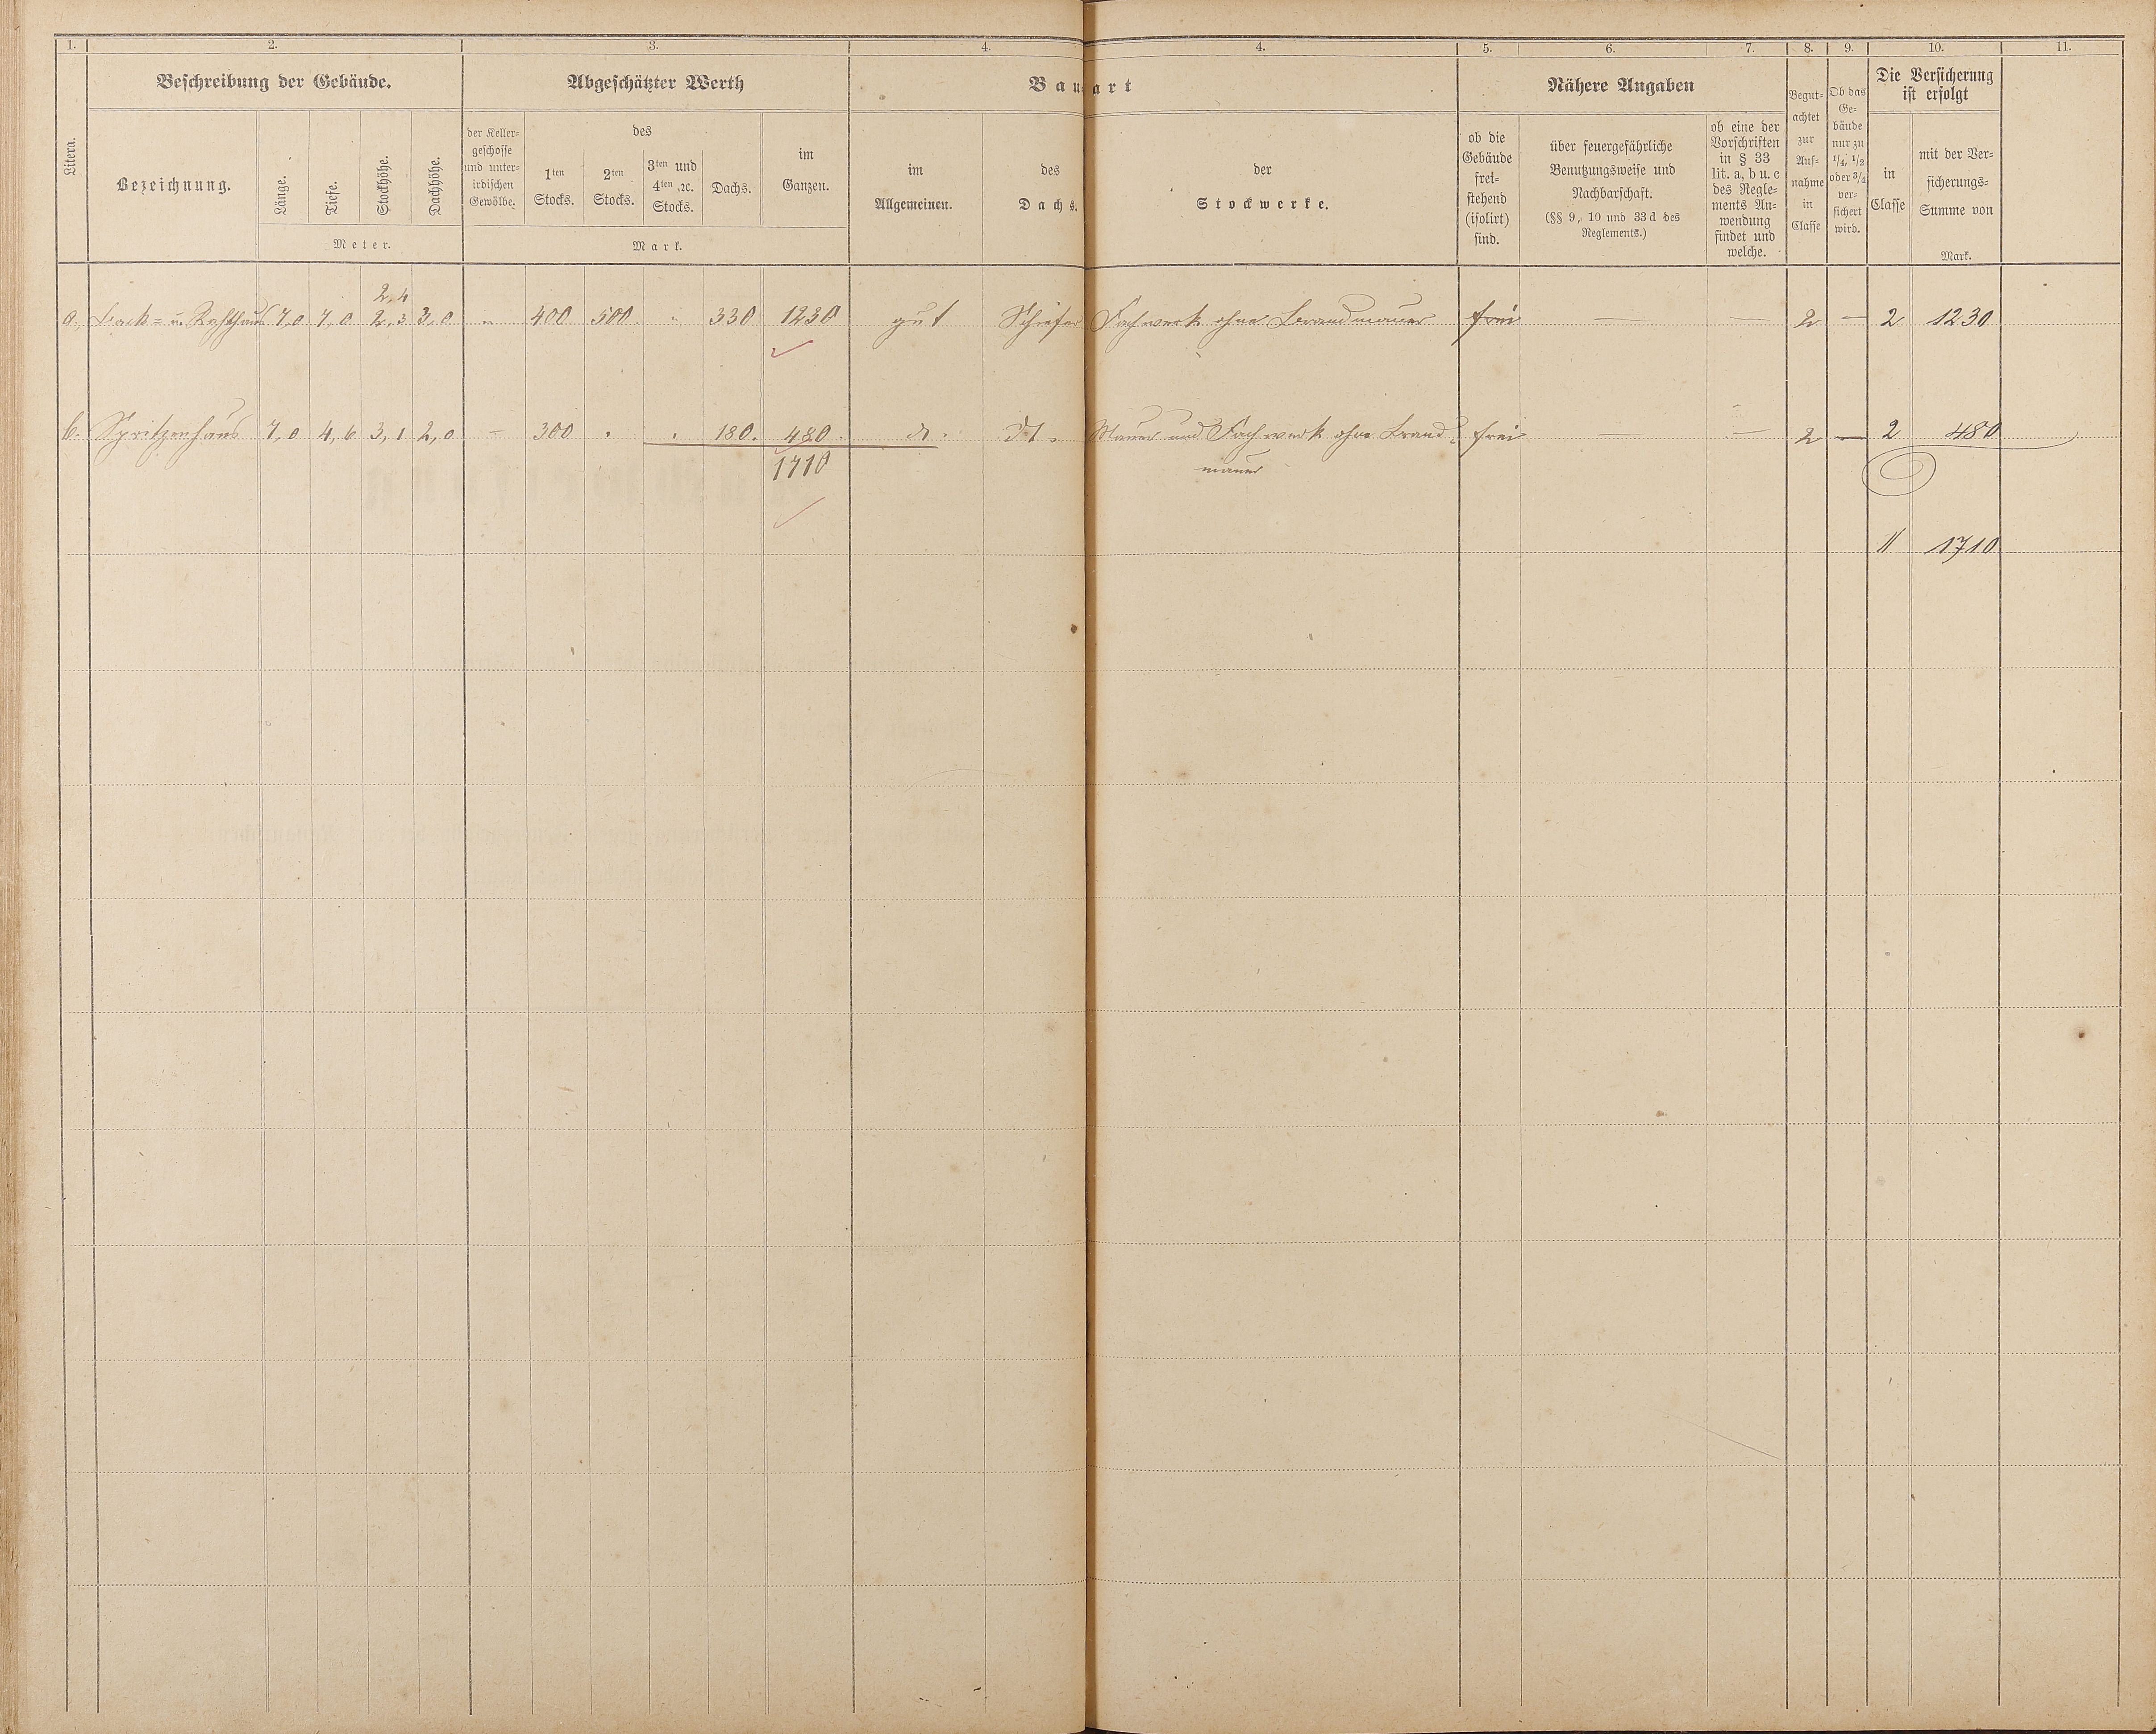 1. 2. 3. 4. 4. 5. 6. 7. 8. 9. 10. 11.
Litera.
Beschreibung der Gebäude.
Bezeichnung.
Länge. Tiefe. Stockhöhe. Dachhöhe.
Meter.
Abgeschätzter Werth
der Keller-
geschosse
und unter-
irdischen
Gewölbe.
des
1ten
Stocks.
2ten
Stocks.
3ten und
4ten ꝛc.
Stocks.
Dachs.
im
Ganzen.
Mark.
Bauart
im
Allgemeinen.
des
Dachs.
der
Stockwerke.
Nähere Angaben
ob die
Gebäude
frei-
stehend
(isolirt)
sind.
über feuergefährliche
Benutzungsweise und
Nachbarschaft.
(§§ 9, 10 und 33 d des
Reglements.)
ob eine der
Vorschriften
in § 33
lit. a, b u. c
des Regle-
ments An-
wendung
findet und
welche.
Begut-
achtet
zur
Auf-
nahme
in
Classe
Ob das
Ge-
bäude
nur zu
1/4, 1/2
oder 3/4
ver-
sichert
wird.
Die Versicherung
ist erfolgt
in
Classe
mit der Ver-
sicherungs-
Summe von
Mark.
2,4
a., Back- u. Rathhaus 7,0 7,0 2,3 3,0 " 400 500 " 330 1230 gut Schiefer Fachwerk ohne Brandmauer frei — — 2 — 2 1230
b. Spritzenhaus 7,0 4,6 3,1 2,0 — 300 " " 180. 480. do. dt. Mauer und Fachwerk ohne Brand- frei — — 2 — 2 480
1710 mauer
11 1710